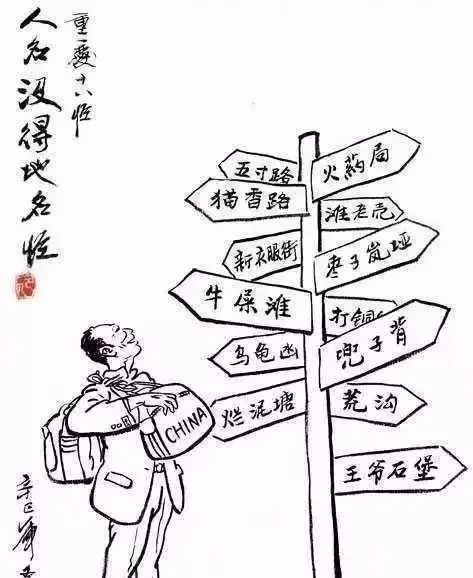 重慶十八怪
人名没得地名怪
五寸路
火葯局
猫香路
滩老壳
新衣服街
枣子岚垭
牛屎滩
打铜
乌龟凼
兜子背
烂泥塘
荒沟
王爷石堡
CHINA
辛巳